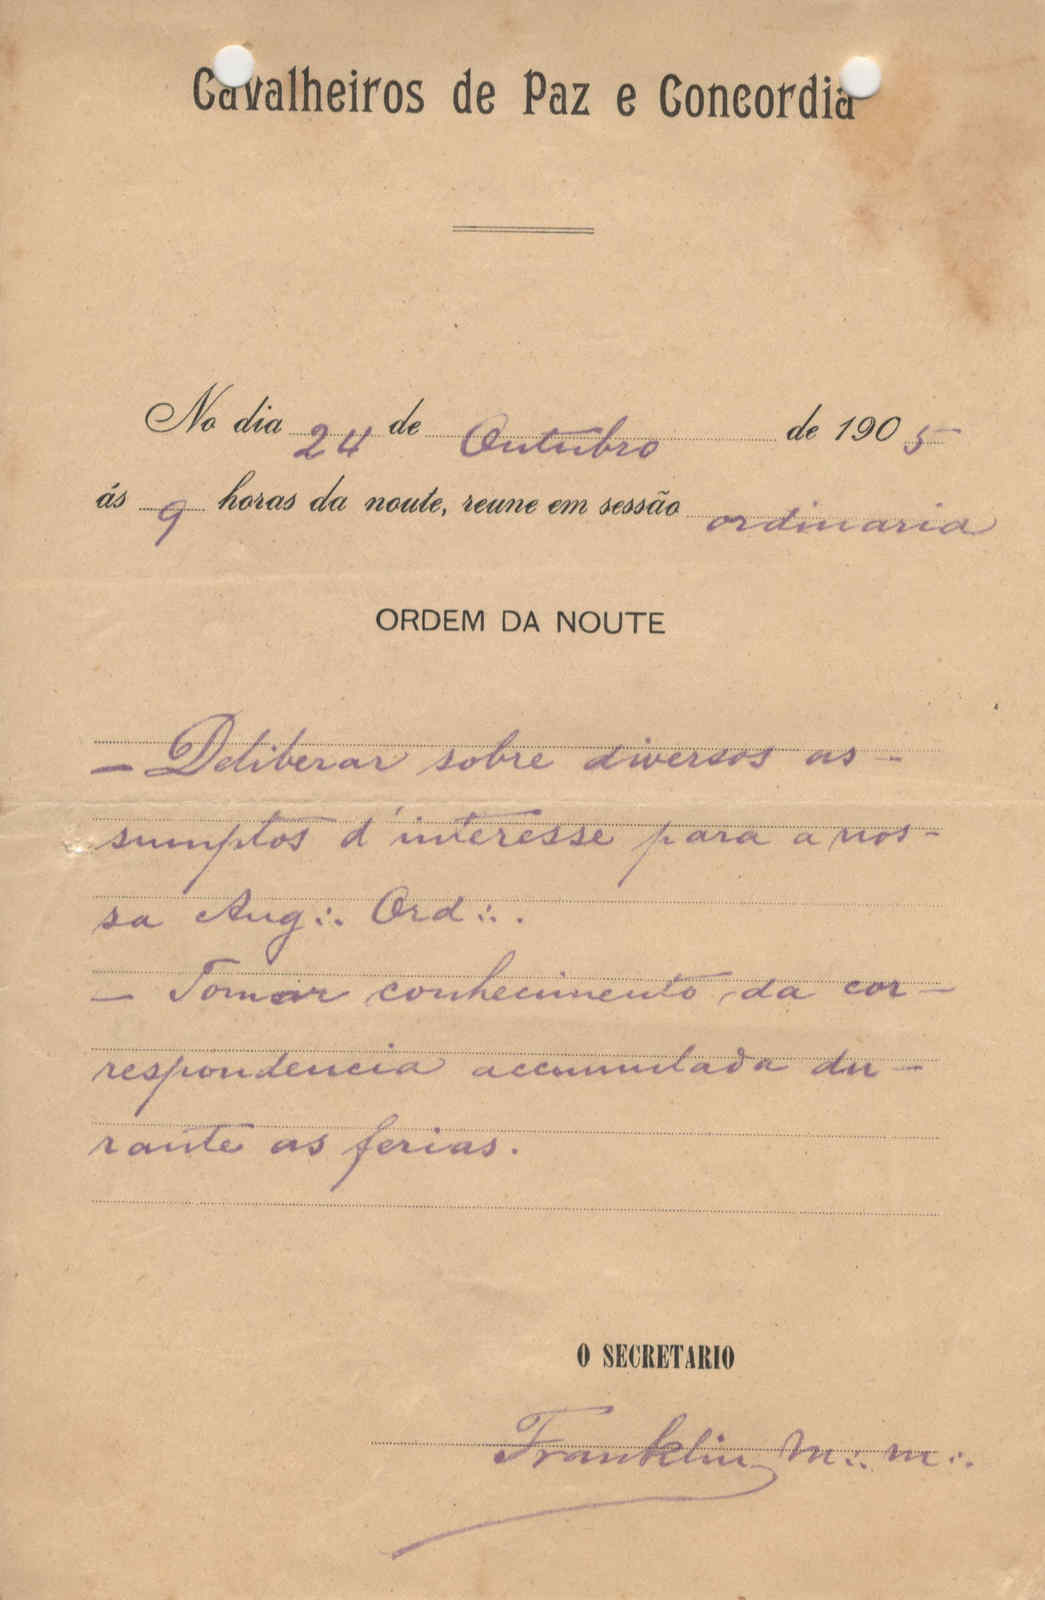 Cavalheiros de Paz e Concordia
No dia 24 de Outubro de 1905
ás 9 horas da noute, reune em sessão ordinaria
ORDEM DA NOUTE
— Deliberar sobre diversos as-
sumptos d'interesse para a nos-
sa Aug∴ Ord∴.
— Tomar conhecimento da cor-
respondencia accumulada du-
rante as ferias.
O SECRETARIO
Franklin M∴ M∴